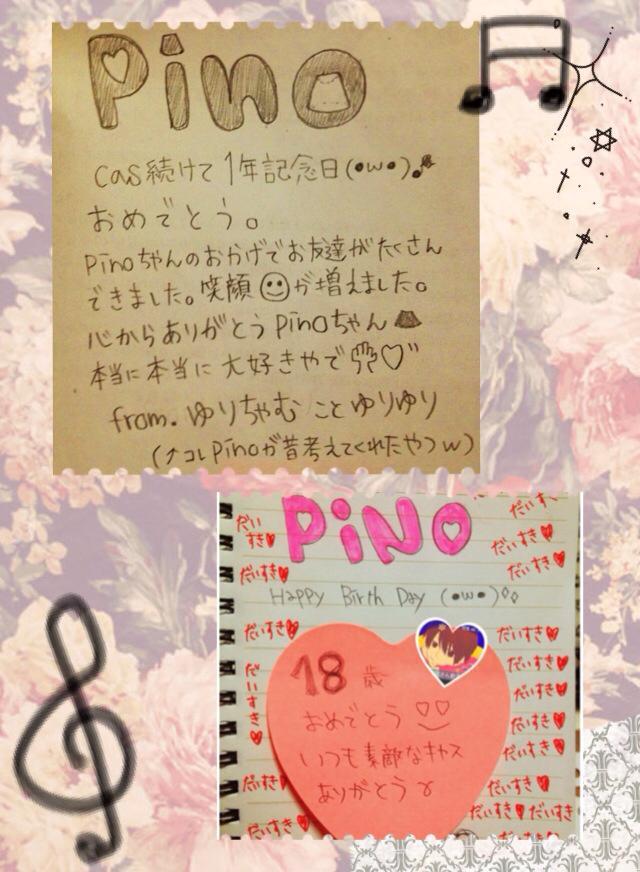 Pino
cas続けて1年記念日(•ω•)
おめでとう。
Pinoちゃんのおかげでお友達がたくさん
できました。笑顔が増えました。
心からありがとうPinoちゃん
本当に本当に大好きやで♡
from.ゆりちゃむことゆりゆり
(↑コレPinoが昔考えてくれたやつw)
PiNO
だいすき
だいすき
だいすき
だいすき
だいすき
Happy Birth Day (•ω•)
だいすき
だいすき
だいすき
だいすき
だいすき
だいすき
だいすき
だいすき
だいすき
だいすき
だいすき
だいすき
だいすき
18歳
おめでとう
いつも素敵なキャス
ありがとう